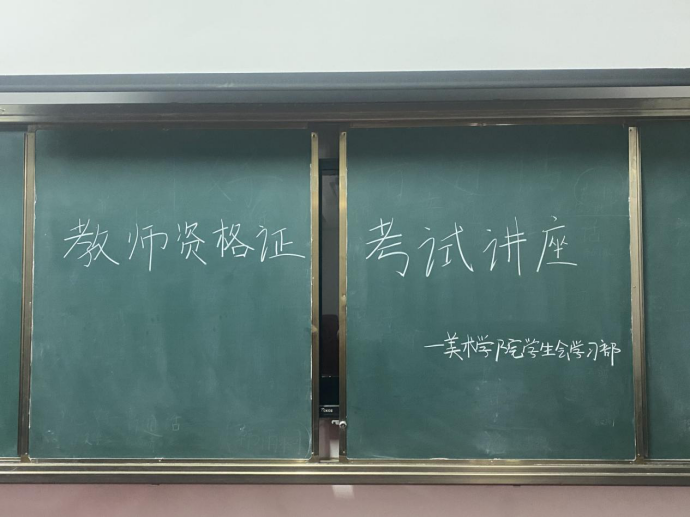 教师资格证 考试讲座
—美术学院学生会学习部